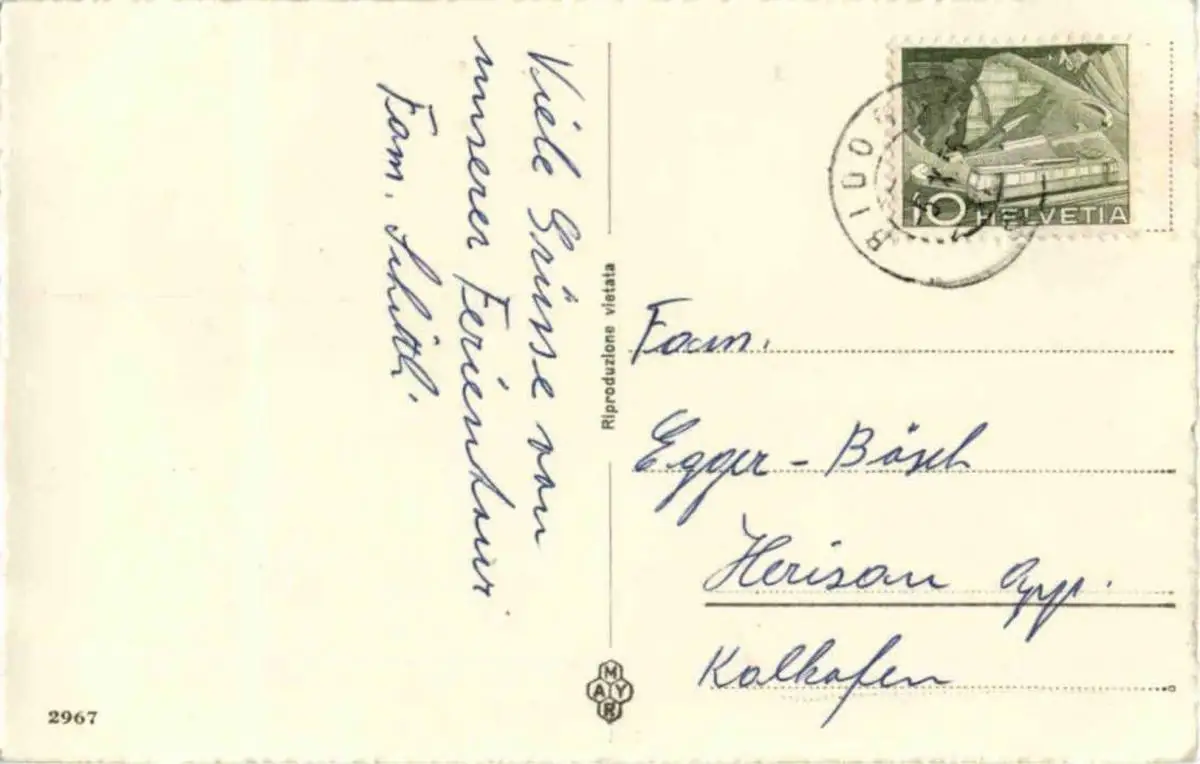 Viele Grüsse von
unserer Ferientour
Fam. Schittli
Riproduzione vietata
10 HELVETIA
Fam.
Egger - Bösch
Herisau App.
Kalkofen
MAYR
2967